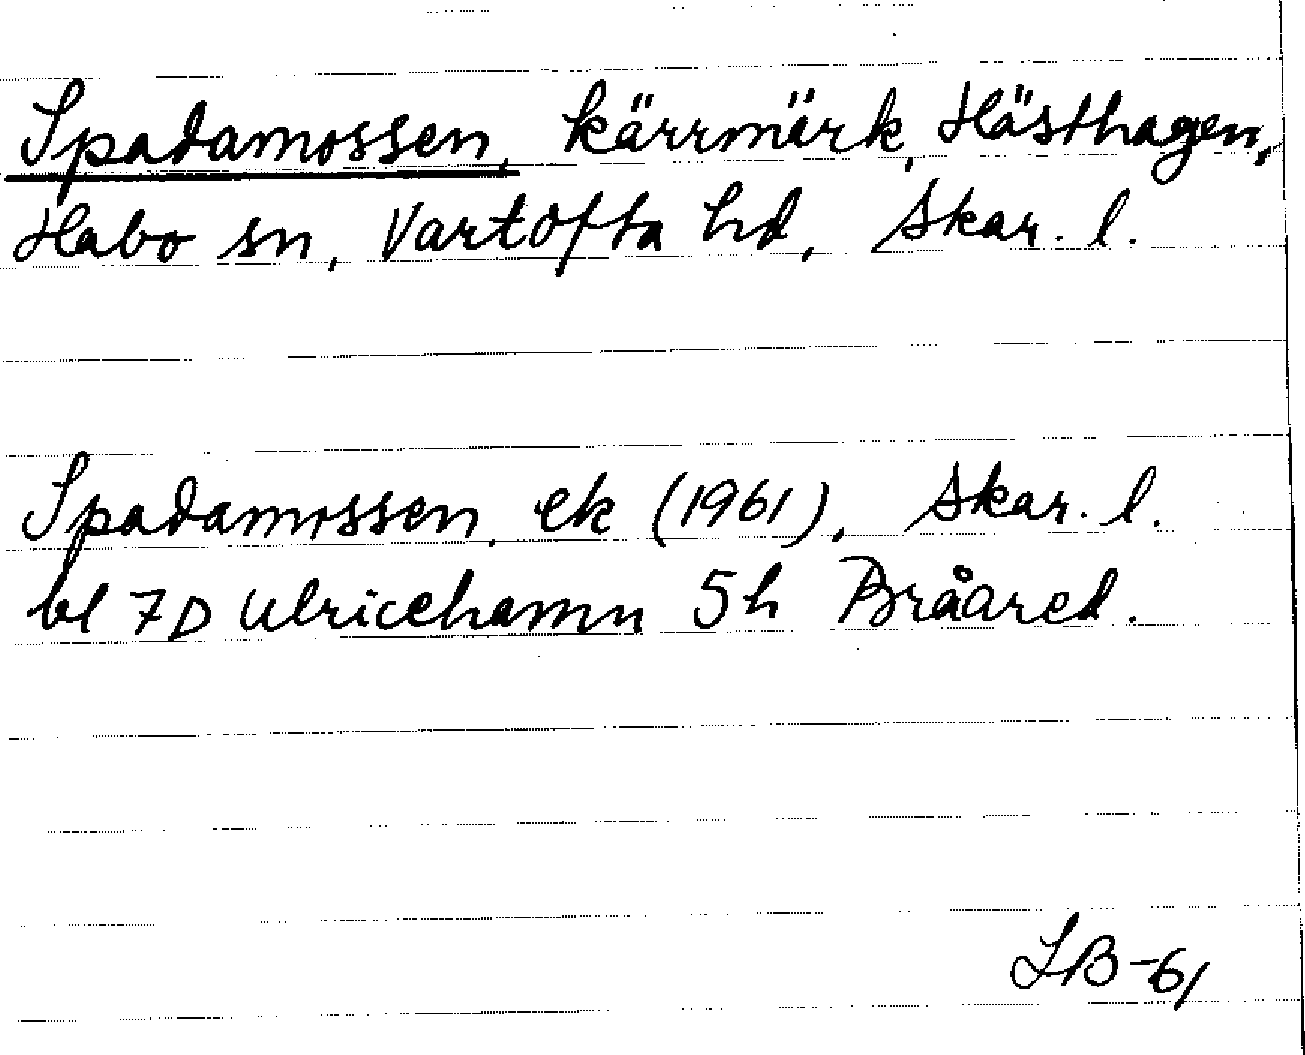 Spadamossen, kärrmärk, Hästhagen,
Habo sn, Vartofta hd, Skar. l.
Spadamossen, ek (1961), Skar. l.
bl 7D Ulricehamn 5h Bråared.
LB-61